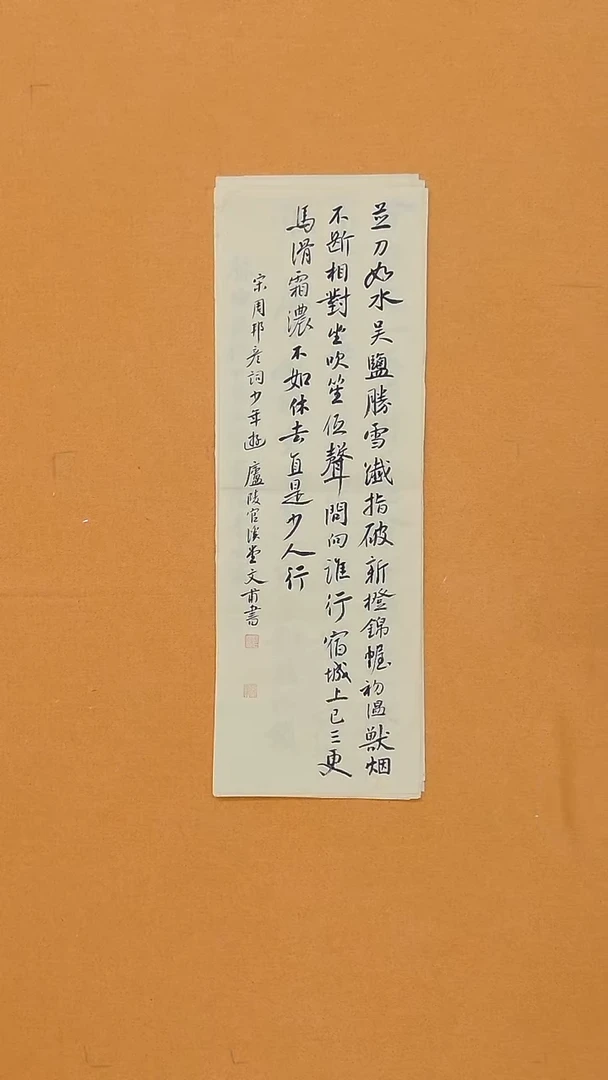 並刀如水吴鹽勝雪纖指破新橙錦幄初温獸烟
不斷相對坐吹笙低聲問向誰行宿城上已三更
馬滑霜濃不如休去直是少人行
宋周邦彦詞少年遊 廬陵官溪堂文甫書